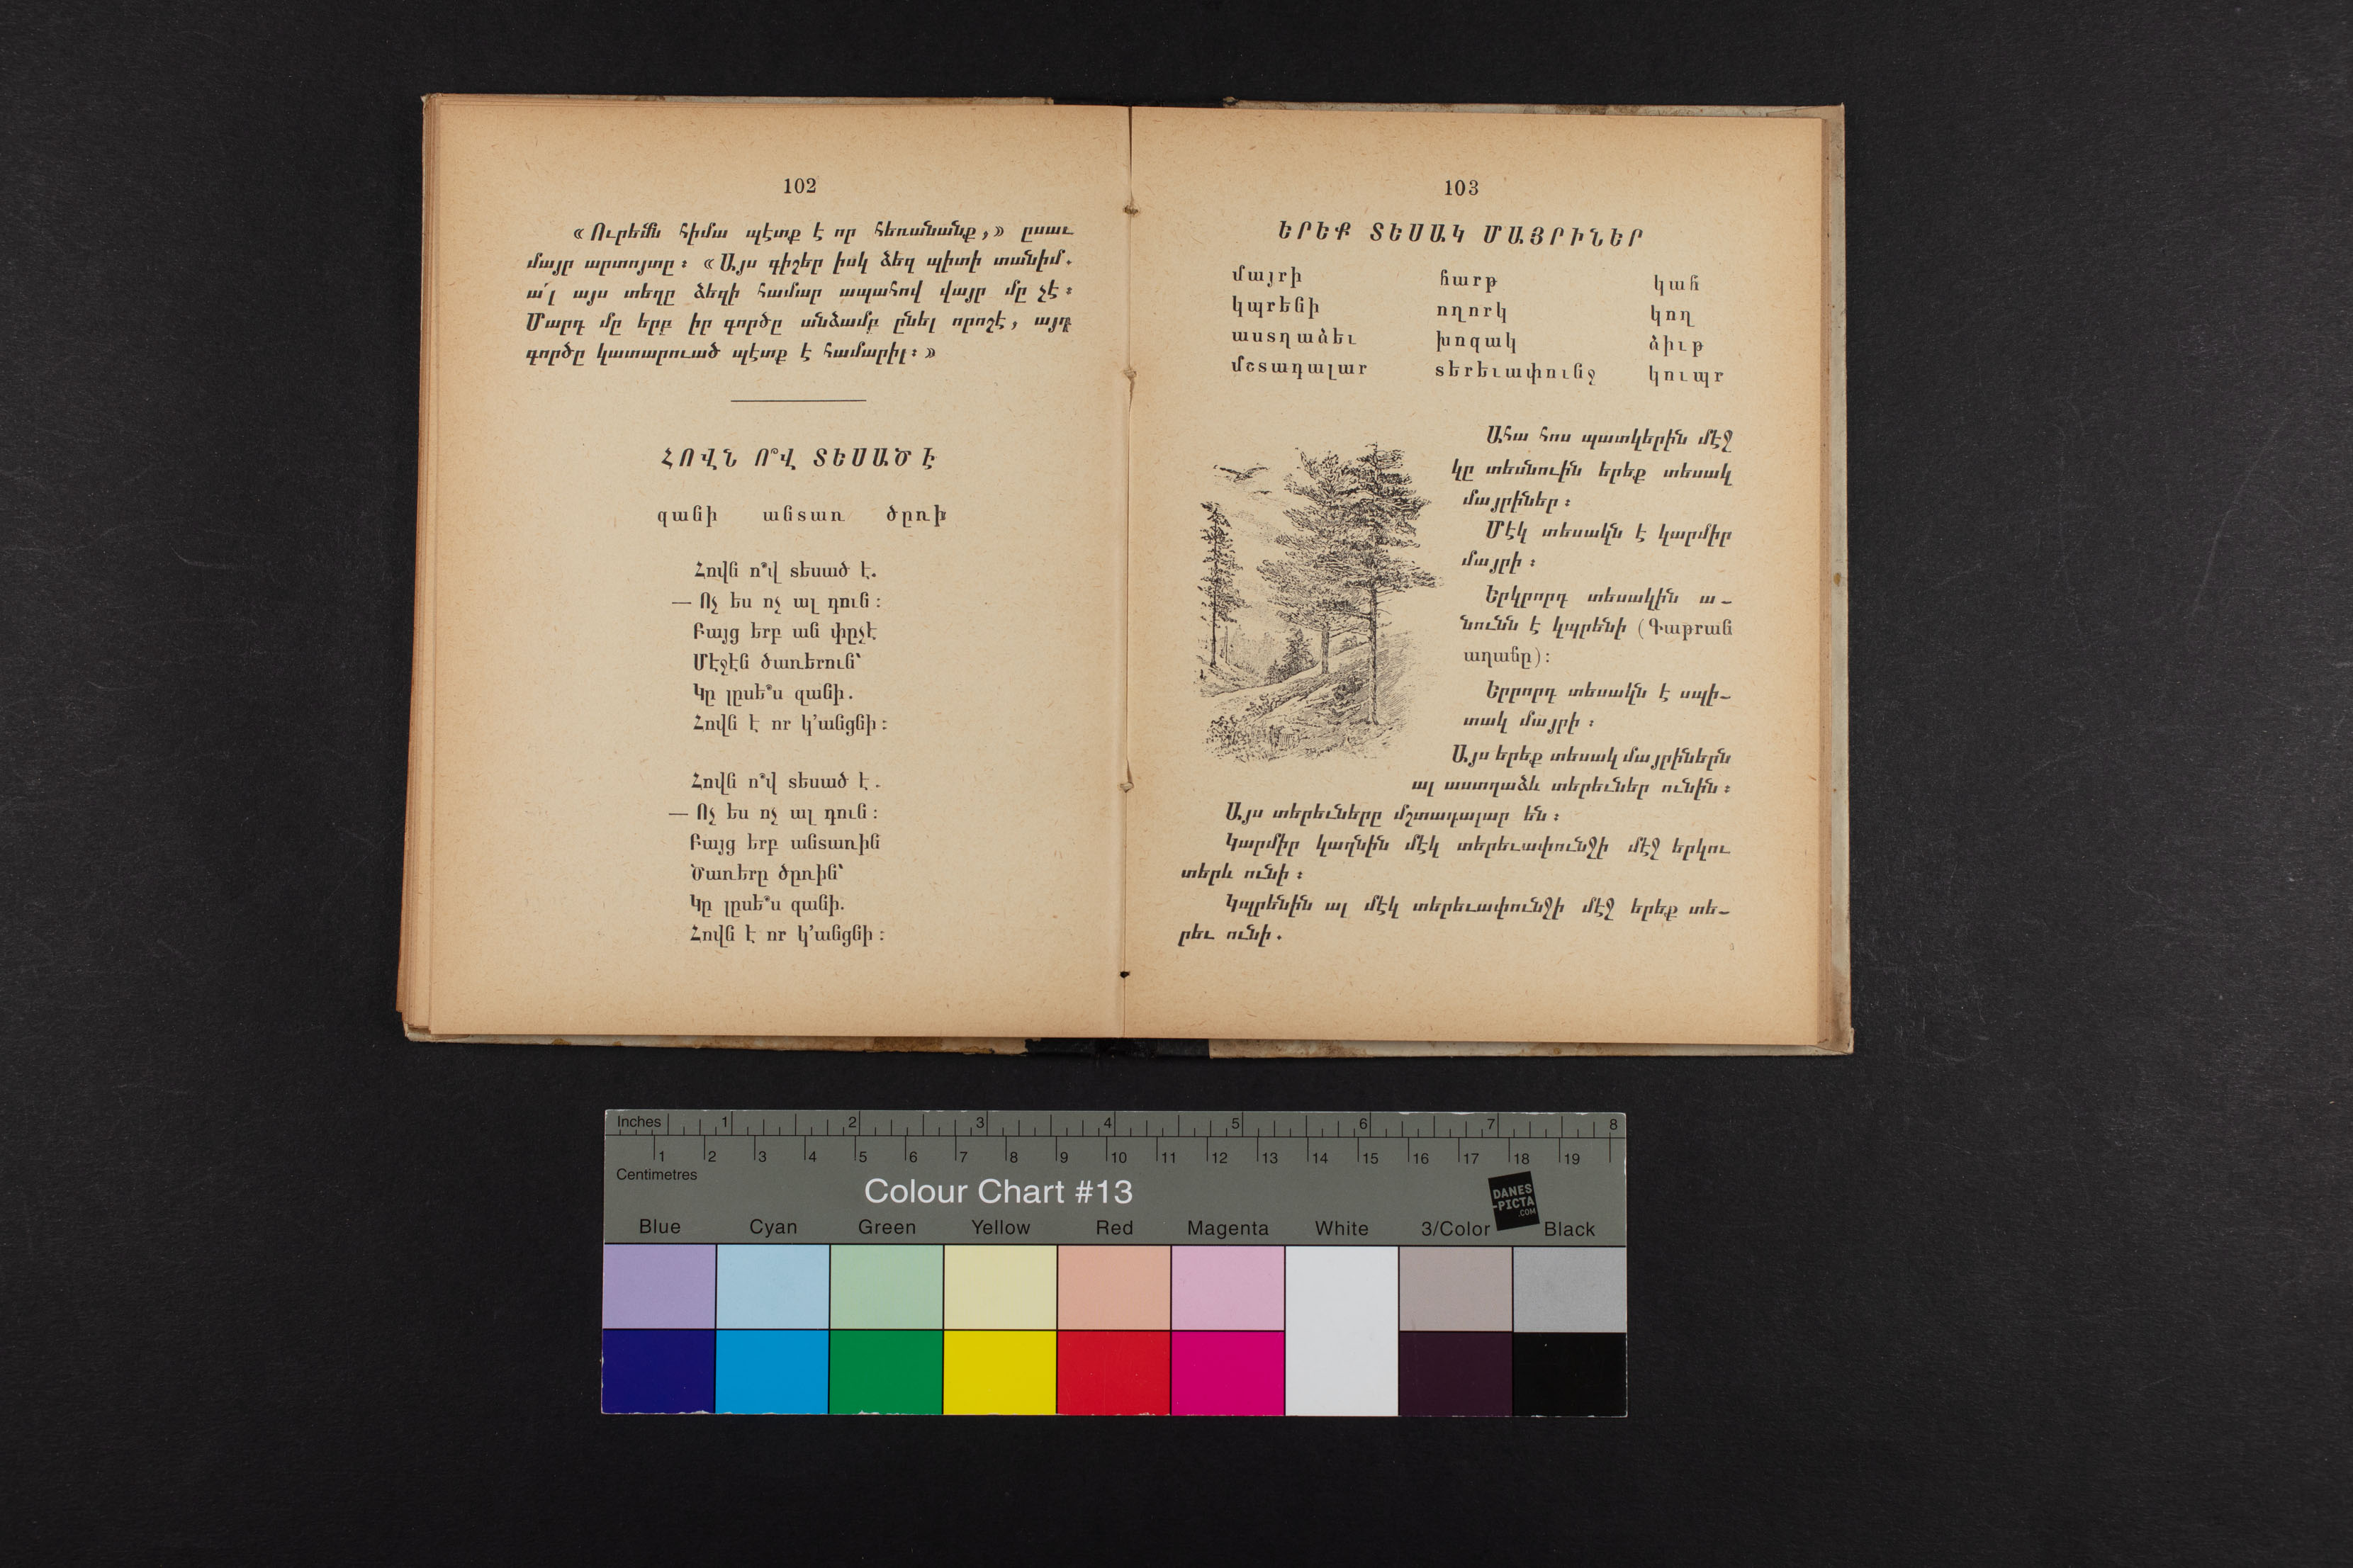 102
«Ուրեմն հիմա պէտք է որ հեռանանք,» ըսաւ
մայր արտոյտը։ «Այս գիշեր իսկ ձեզ պիտի տանիմ.
ա՛լ այս տեղը ձեզի համար ապահով վայր մը չէ։
Մարդ մը երբ իր գործը անձամբ ընել որոշէ, այդ
գործը կատարուած պէտք է համարիլ։»
ՀՈՎՆ Ո՞Վ ՏԵՍԱԾ Է
զանի անտառ ծըռի
Հովն ո՞վ տեսած է.
— Ոչ ես ոչ ալ դուն։
Բայց երբ ան փըչէ
Մէջէն ծառերուն՝
Կը լըսե՞ս զանի.
Հովն է որ կ՚անցնի։
Հովն ո՞վ տեսած է.
— Ոչ ես ոչ ալ դուն։
Բայց երբ անտառին
Ծառերը ծըռին՝
Կը լըսե՞ս զանի.
Հովն է որ կ՚անցնի։
103
ԵՐԵՔ ՏԵՍԱԿ ՄԱՅՐԻՆԵՐ
մայրի հարթ կահ
կպրենի ողորկ կող
աստղաձեւ խոզակ ձիւթ
մշտադալար տերեւափունջ կուպր
Ահա հոս պատկերին մէջ
կը տեսնուին երեք տեսակ
մայրիներ։
Մէկ տեսակն է կարմիր
մայրի։
Երկրորդ տեսակին ա-
նունն է կպրենի (Գաթրան
աղանը)։
Երրորդ տեսակն է սպի-
տակ մայրի։
Այս երեք տեսակ մայրիներն
ալ աստղաձև տերեւներ ունին։
Այս տերեւները մշտադալար են։
Կարմիր կաղնին մէկ տերեւափունջի մէջ երկու
տերև ունի։
Կպրենին ալ մէկ տերեւափունջի մէջ երեք տե-
րեւ ունի.
Inches 1 2 3 4 5 6 7 8
1 2 3 4 5 6 7 8 9 10 11 12 13 14 15 16 17 18 19
Centimetres
Colour Chart #13
DANES
-PICTA
.COM
Blue Cyan Green Yellow Red Magenta White 3/Color Black